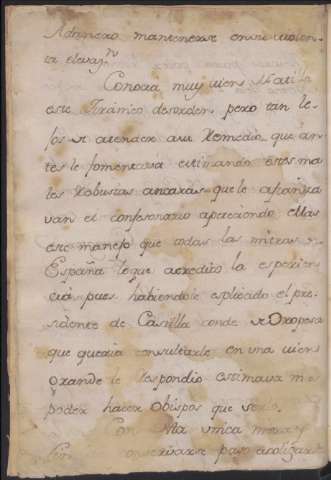 mantenerse en su violen-
ta elevaz.n
Conocia muy vien
este Tiranico desorden, pero tan le-
jos de atender a su Remedio, que an-
tes le fomentava estimando estos ma
les Robustas ancoras que le afianza
van el confesonario apreciando ellas
este manejo que todas las mitras de
España lo que acredito la esperien
cia pues habiendole esplicado el pre-
sidente de Castilla conde de Oropesa
que queria consultarle en una vien
grande le Respondio estimava mas
poder hacer obispos que serlo.
Con esta unica mera y
conservarse paso a solizitar